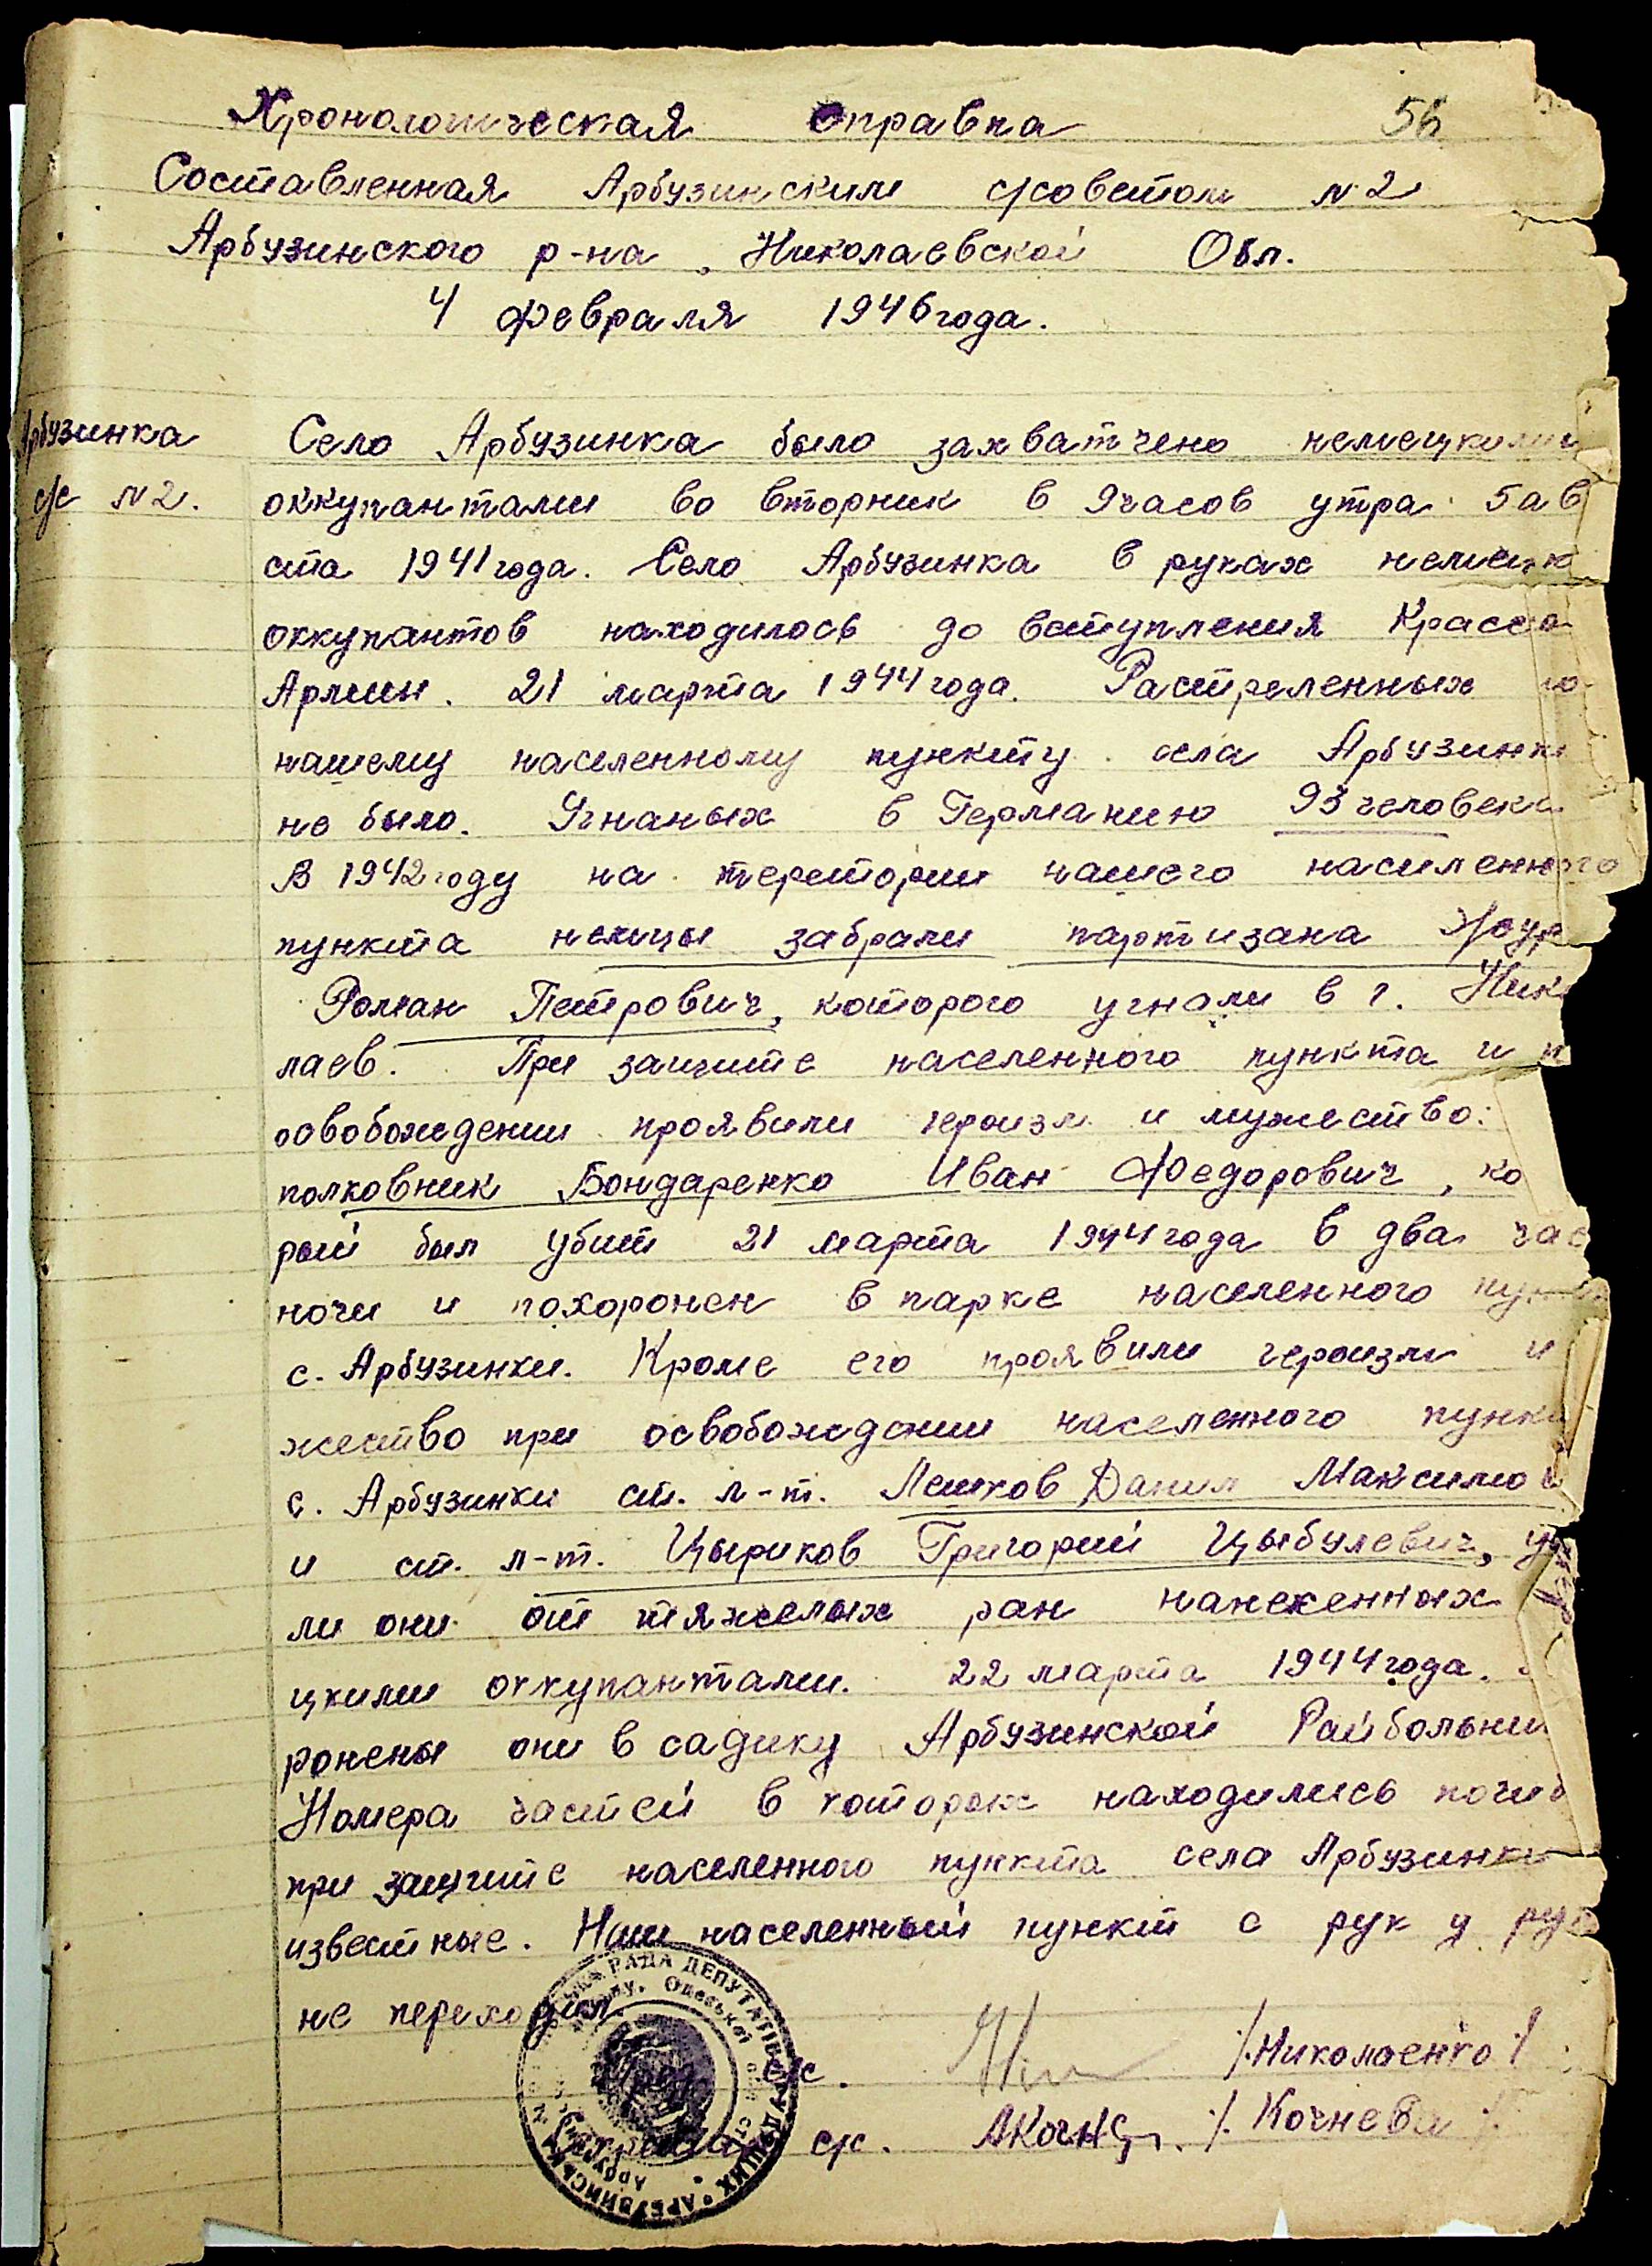 56
Хронологическая справка
Составленная Арбузинским с/советом N 2
Арбузинского р-на, Николаевской Обл.
4 февраля 1946 года.
Арбузинка
с/с N 2.
Село Арбузинка было захватчено немецкими
оккупантами во вторник в 9 часов утра 5 ав
ста 1941 года. Село Арбузинка в руках немецк
оккупантов находилось до вступления Красно
Армии. 21 марта 1944 года. Растреленных по
нашему населенному пункту села Арбузинк
не было. Угнаных в Германию 93 человека
В 1942 году на територии нашего населенного
пункта немцы забрали партизана
Роман Петрович, которого угнали в г. Нико
лаев. При защите населенного пункта и п
освобождении проявили героизм и мужество:
полковник Бондаренко Иван Федорович, ко
рый был убит 21 марта 1944 года в два час
ночи и похоронен в парке населенного пунк
с. Арбузинки. Кроме его проявили героизм и
жество при освобождении населенного пунк
с. Арбузинки ст. л-т. Лешков Данил Максимов
и ст. л-т. Цыриков Григорий Цыбулевич, ум
ли они от тяжелых ран нанесенных
цкими оккупантами. 22 марта 1944 года.
ронены они в садику Арбузинской Райбольни
Номера частей в которых находились погиб
при защите населенного пункта села Арбузинки
известные. Наш населенный пункт с рук у рук
не переходил.
с/с. /Николаенко/
Секретарь с/с. АКочн /Кочнева/
РАДА ДЕПУТАТІВ ТРУДЯЩИХ * АРБУЗИНСЬК
Одеської